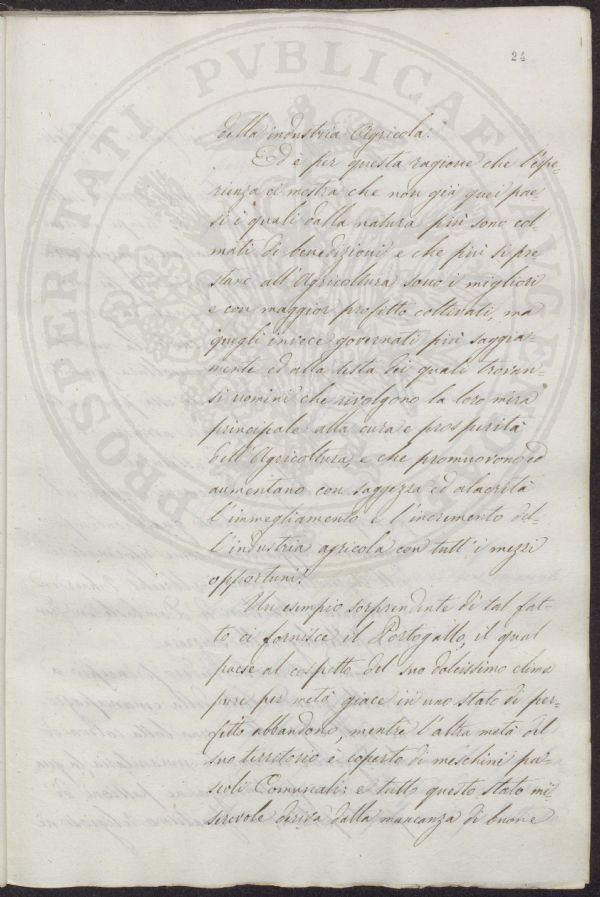 24
PROSPERITATI PVBLICAE
della industria Agricola.
Ed è per questa ragione che l'espe-
rienza ci mostra che non già quei pae-
si i quali dalla natura più sono col-
mati di benedizioni e che più si pre
stano all'Agricoltura sono i migliori
e con maggior profitto coltivati, ma
quegli invece governati più saggia-
mente ed alla testa dei quali trovan-
si uomini che rivolgono la loro mira
principale alla cura e prosperità
dell'Agricoltura, e che promuovono ed
aumentano con saggezza ed alacrità
l'immegliamento e l'incremento del-
l'industria agricola con tutt'i mezzi
opportuni.
Un esempio sorprendente di tal fat-
to ci fornisce il Portogallo, il qual
paese al cospetto del suo dolcissimo clima
pure per metà giace in uno stato di per-
fetto abbandono, mentre l'altra metà del
suo territorio è coperto di meschini pa-
scoli Comunali: e tutto questo stato mi-
serevole deriva dalla mancanza di buone